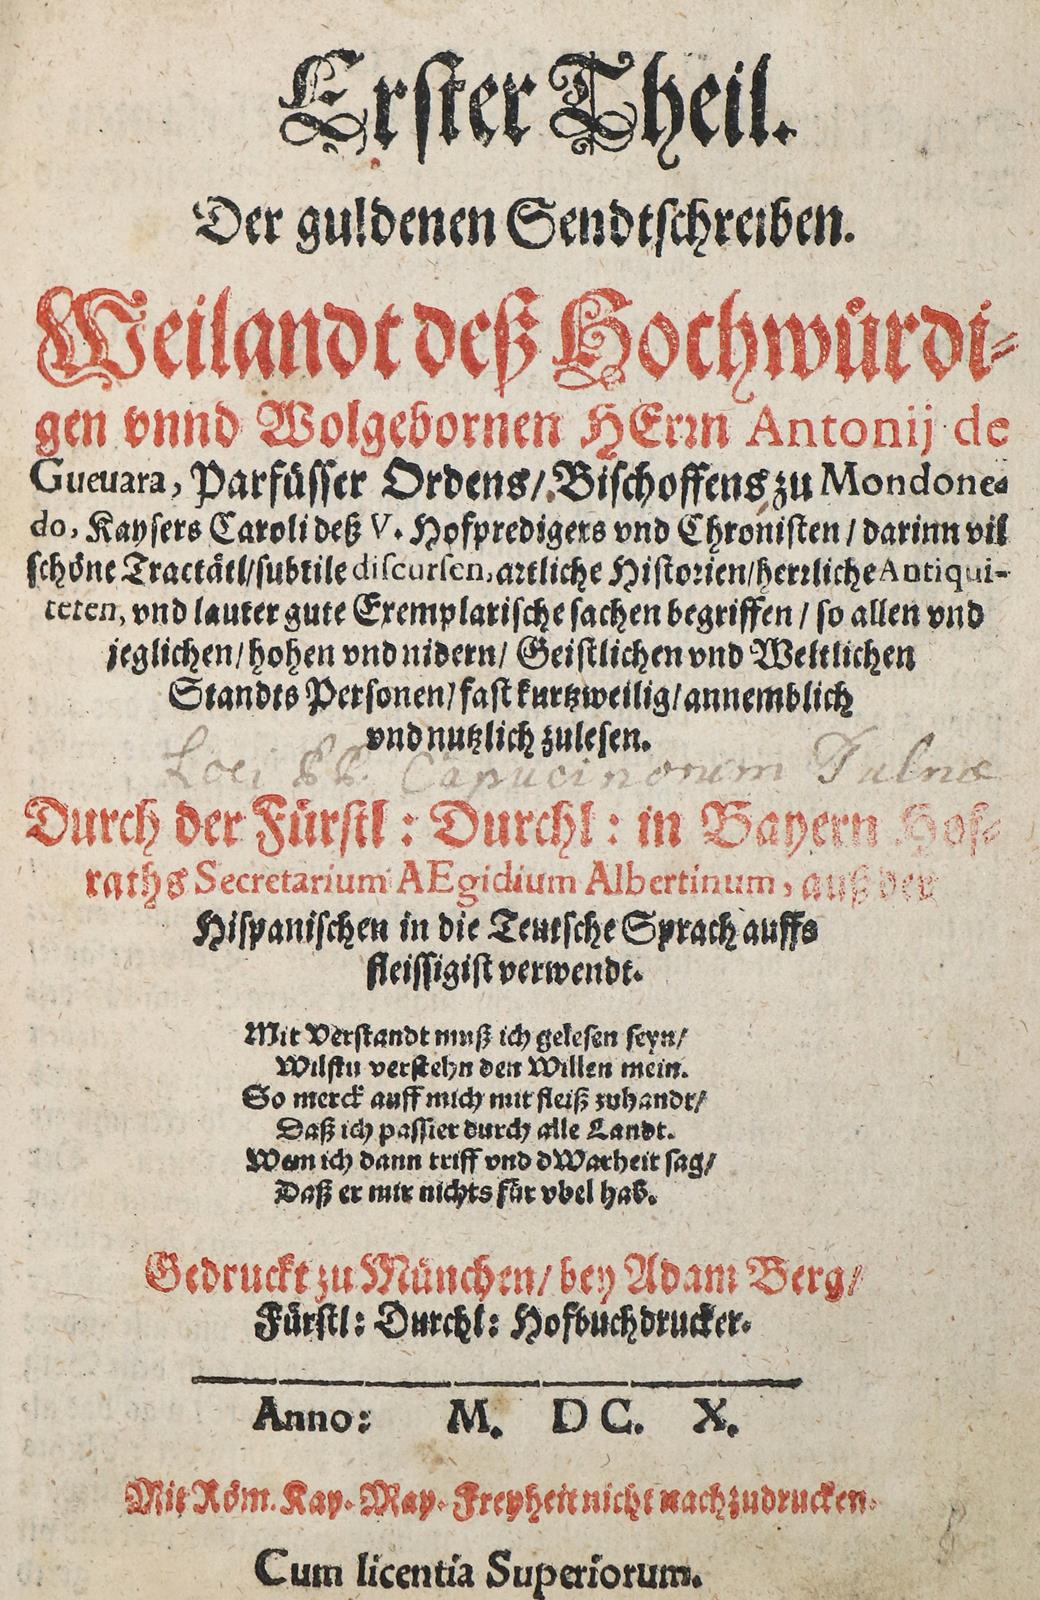 Erster Theil.
Der guldenen Sendtschreiben.
Weilandt deß Hochwürdi-
gen vnnd Wolgebornen HErrn Antonij de
Gueuara, Parfüsser Ordens/ Bischoffens zu Mondone-
do, Kaysers Caroli deß V. Hofpredigers vnd Chronisten / darinn vil
schöne Tractätl/ subtile discursen, artliche Historien/ herrliche Antiqui-
teten, vnd lauter gute Exemplarische sachen begriffen / so allen vnd
jeglichen/ hohen vnd nidern/ Geistlichen vnd Weltlichen
Standts Personen/ fast kurtzweilig/ annemblich
vnd nutzlich zulesen.
Loci PP. Capucinorum Tulnæ
Durch der Fürstl: Durchl: in Bayern Hof-
raths Secretarium AEgidium Albertinum, auß der
Hispanischen in die Teutsche Sprach auffs
fleissigist verwendt.
Mit Verstandt muß ich gelesen seyn/
Wilstu verstehn den Willen mein.
So merck auff mich mit fleiß zuhandt/
Daß ich passier durch alle Landt.
Wem ich dann triff vnd dWarheit sag/
Daß er mir nichts für vbel hab.
Gedruckt zu München/ bey Adam Berg/
Fürstl: Durchl: Hofbuchdrucker.
Anno: M. DC. X.
Mit Röm. Kay. May. Freyheit nicht nachzudrucken.
Cum licentia Superiorum.